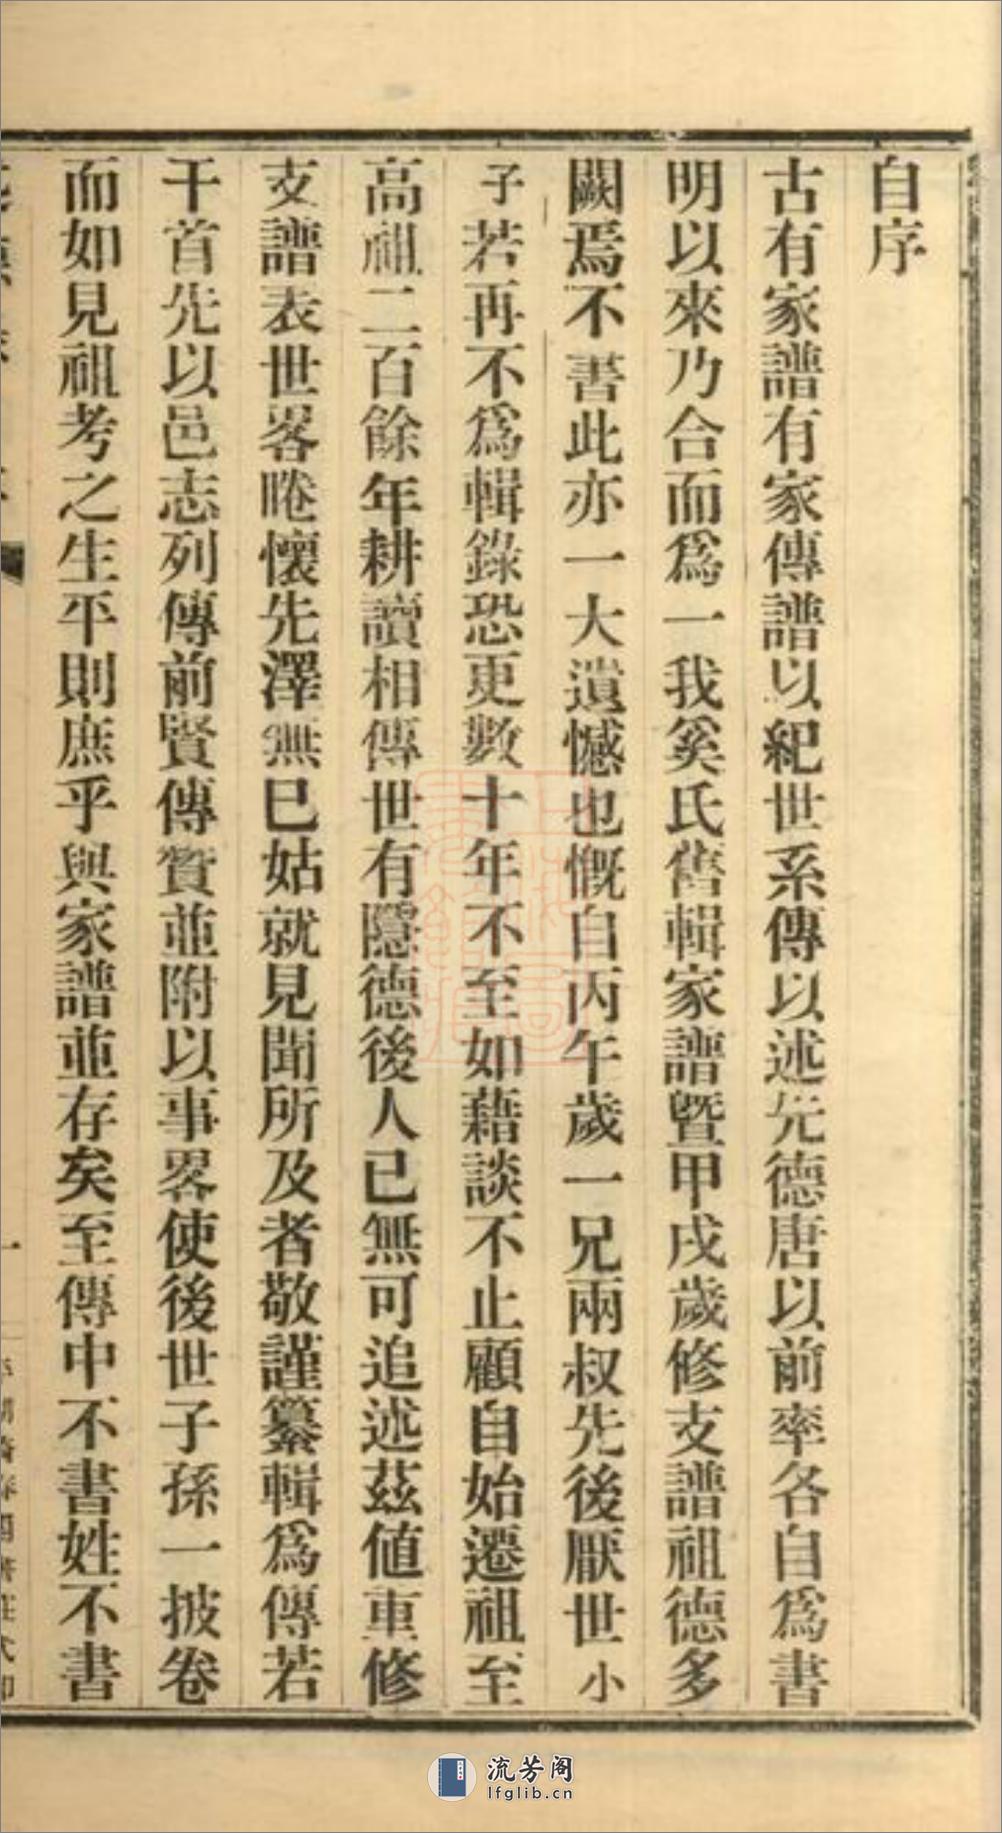 自序
古有家譜有家傳譜以紀世系傳以述先德唐以前率各自爲書
明以來乃合而爲一我奚氏舊輯家譜暨甲戌歲修支譜祖德多
闕焉不書此亦一大遺憾也慨自丙午歲一兄兩叔先後厭世小
子若再不爲輯錄恐更數十年不至如藉談不止顧自始遷祖至
高祖二百餘年耕讀相傳世有隱德後人已無可追述茲値重修
支譜表世畧睠懷先澤無已姑就見聞所及者敬謹纂輯爲傳若
干首先以邑志列傳前賢傳贊並附以事畧使後世子孫一披卷
而如見祖考之生平則庶乎與家譜並存矣至傳中不書姓不書
一
流芳阁
lfglib.cn